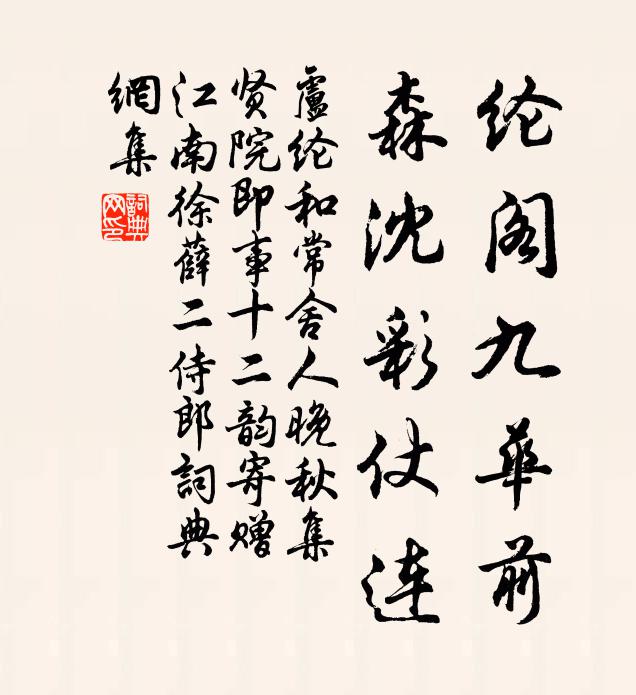 纶阁九華前
森沈彩仗连
盧纶和常舍人晚秋集
贤院即事十二韵寄赠
江南徐薛二侍郎詞典
網集
詞典
网印